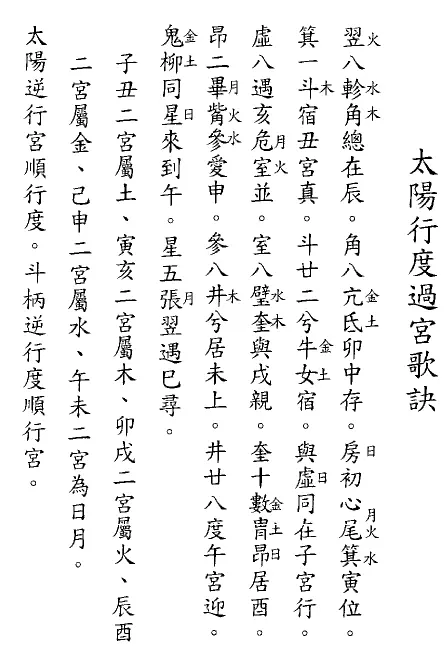 太陽行度過宮歌訣
火 水木 金土 日 月火 水
翌八軫角總在辰。角八亢氐卯中存。房初心尾箕寅位。
木 金土 日
箕一斗宿丑宮真。斗廿二兮牛女宿。與虛同在子宮行。
月火 水木 金土日
虛八遇亥危室並。室八璧奎與戌親。奎十數胄昂居酉。
月火水 木
昂二畢觜參愛申。參八井兮居未上。井廿八度午宮迎。
金土 日 月
鬼柳同星來到午。星五張翌遇巳尋。
子丑二宮屬土、寅亥二宮屬木、卯戌二宮屬火、辰酉
二宮屬金、己申二宮屬水、午未二宮為日月。
太陽逆行宮順行度。斗柄逆行度順行宮。